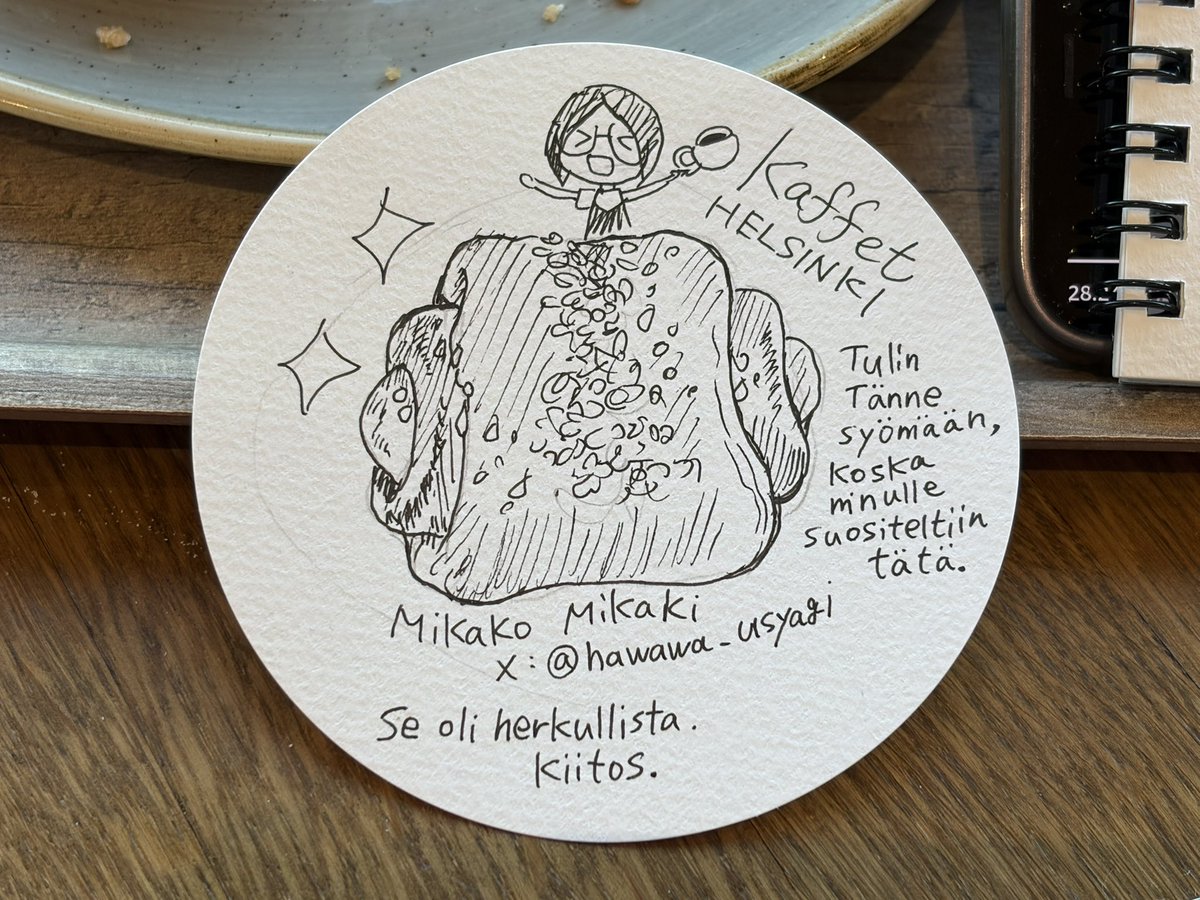 Kaffet
HELSINKI
Tulin
Tänne
syömään,
koska
minulle
suositeltiin
tätä.
Mikako Mikaki
X: @hawawa_usyagi
Se oli herkullista.
Kiitos.
28.2